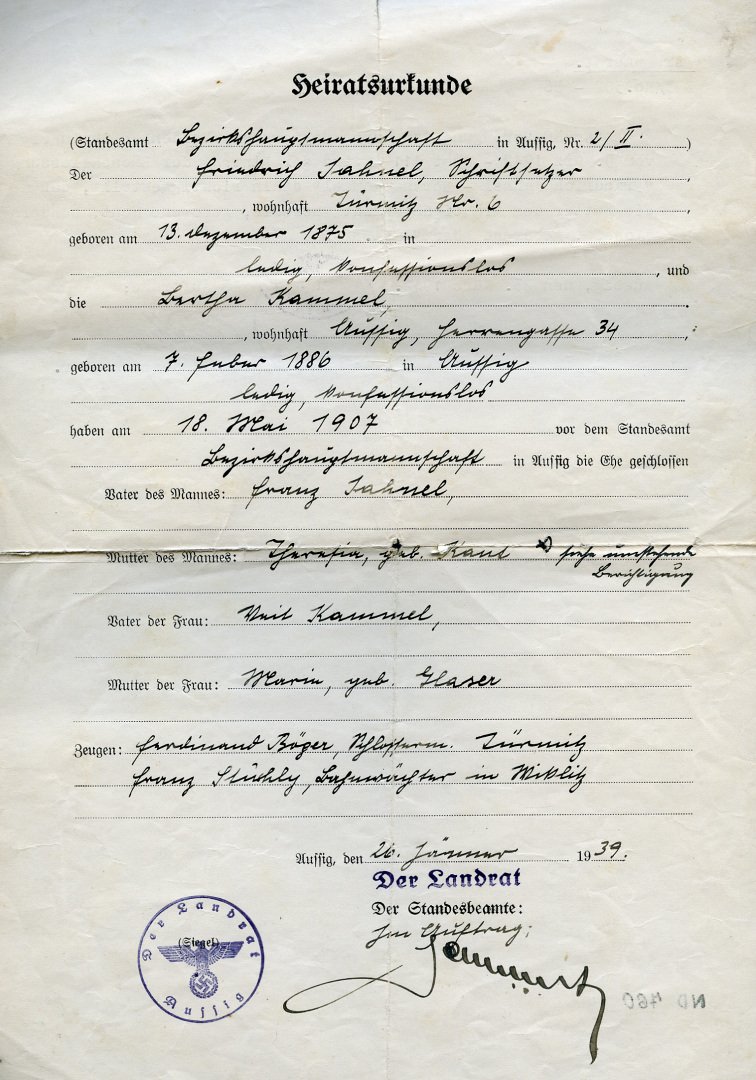 Heiratsurkunde
(Standesamt Bezirkshauptmannschaft in Aussig, Nr. 2/II.)
Der Friedrich Jahnel, Schriftsetzer,
, wohnhaft Türmitz Nr. 6,
geboren am 13. Dezember 1875 in
ledig, konfessionslos, und
die Bertha Kammel,
, wohnhaft Aussig, Herrengasse 34,
geboren am 7. Feber 1886 in Aussig
ledig, konfessionslos
haben am 18. Mai 1907 vor dem Standesamt
Bezirkshauptmannschaft in Aussig die Ehe geschlossen
Vater des Mannes: Franz Jahnel,
Mutter des Mannes: Theresia, geb. Kaut siehe umstehende
Berichtigung
Vater der Frau: Veit Kammel,
Mutter der Frau: Marie, geb. Glaser
Zeugen: Ferdinand Böger, Schlosserm. Türmitz
Franz Stüchly, Bahnwächter in Wiklitz
Aussig, den 26. Jänner 1939.
Der Landrat
Der Standesbeamte:
Im Auftrag:
(Siegel)
Der Landrat
Aussig
ND 460